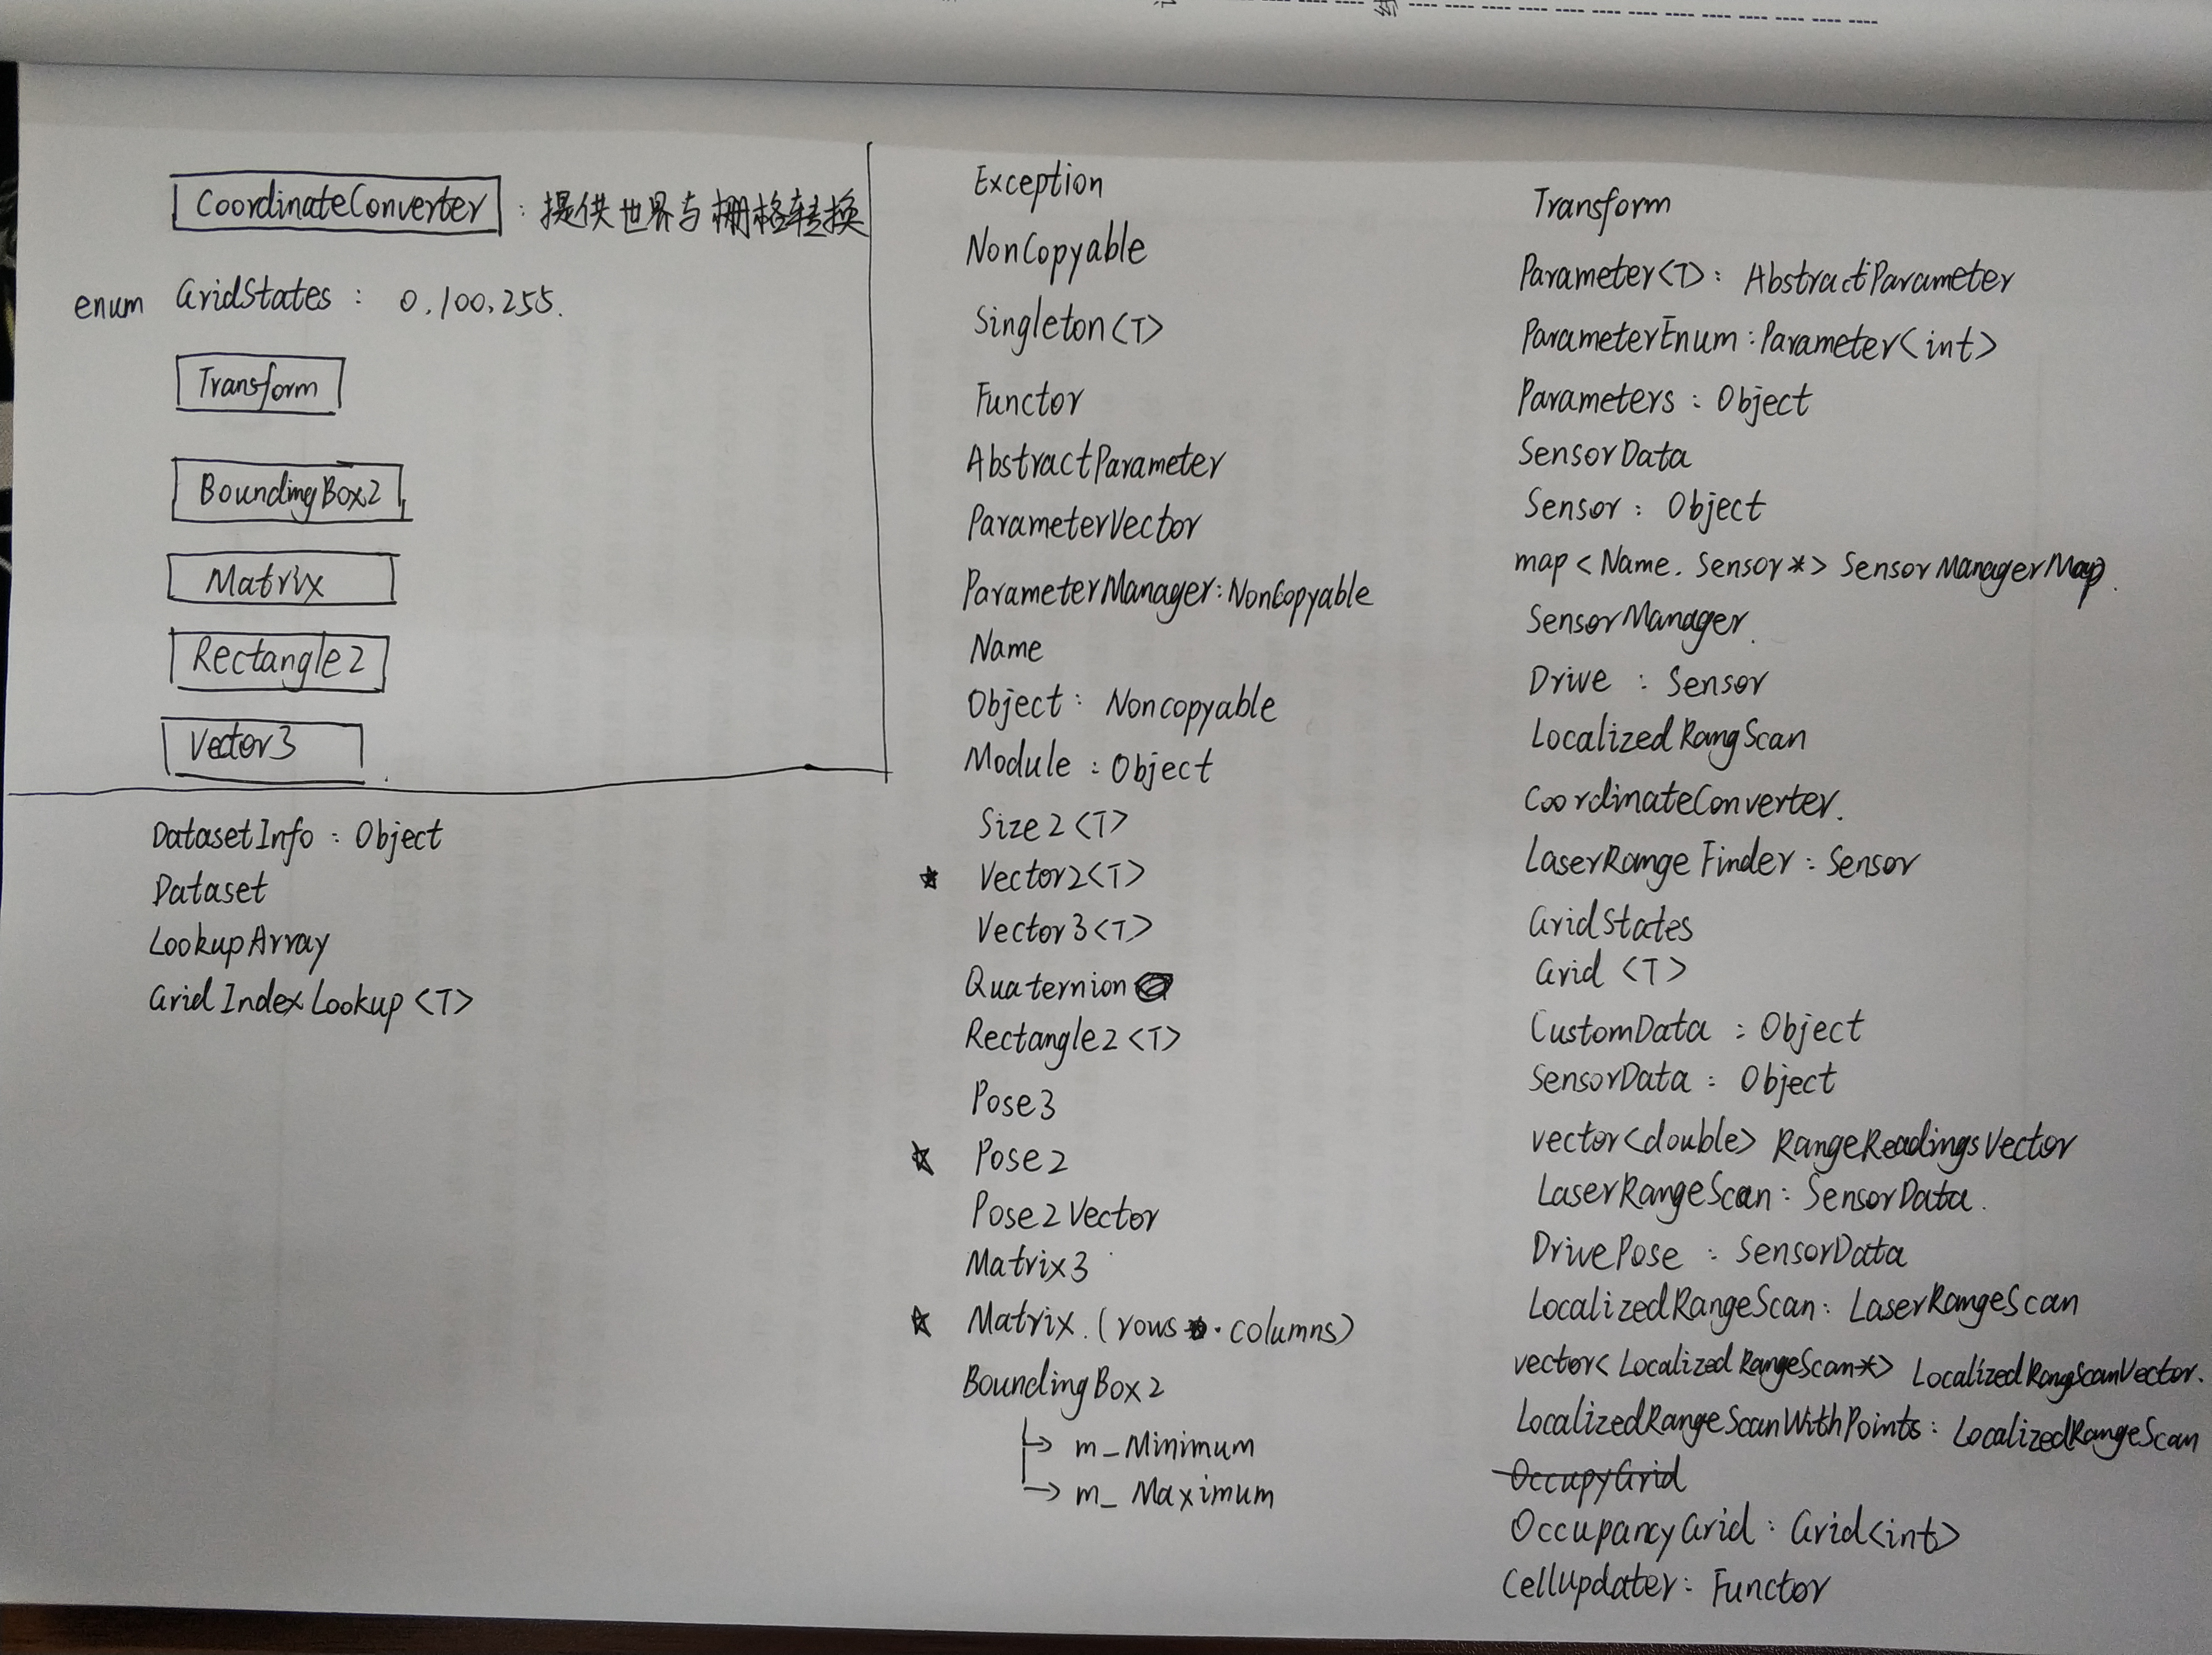 CoordinateConverter : 提供世界与栅格转换
enum GridStates : 0,100,255.
Transform
BoundingBox2
Matrix
Rectangle2
Vector3
DatasetInfo : Object
Dataset
LookupArray
GridIndexLookup<T>
Exception
NonCopyable
Singleton<T>
Functor
AbstractParameter
ParameterVector
ParameterManager:NonCopyable
Name
Object: Noncopyable
Module : Object
Size2<T>
★ Vector2<T>
Vector3<T>
Quaternion
Rectangle2<T>
Pose3
★ Pose2
Pose2Vector
Matrix3
★ Matrix.(rows . columns)
BoundingBox2
→ m_Minimum
→ m_Maximum
Transform
Parameter<T>: AbstractParameter
ParameterEnum:Parameter<int>
Parameters : Object
SensorData
Sensor : Object
map<Name, Sensor*> SensorManagerMap.
SensorManager.
Drive : Sensor
LocalizedRangScan
CoordinateConverter.
LaserRangeFinder: Sensor
GridStates
Grid<T>
CustomData : Object
SensorData : Object
vector<double> RangeReadingsVector
LaserRangeScan: SensorData.
DrivePose : SensorData
LocalizedRangeScan: LaserRangeScan
vector<LocalizedRangeScan*> LocalizedRangScanVector.
LocalizedRangeScanWithPoints: LocalizedRangeScan
OccupyGrid
OccupancyGrid: Grid<int>
CellUpdater: Functor